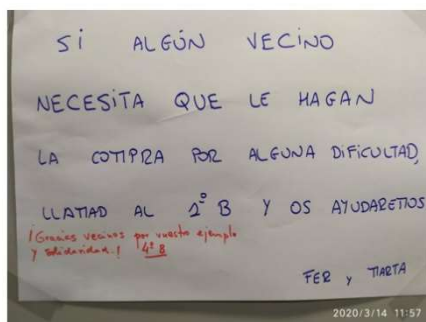 SI ALGÚN VECINO
NECESITA QUE LE HAGAN
LA COMPRA POR ALGUNA DIFICULTAD,
LLAMAD AL 1º B Y OS AYUDAREMOS
¡Gracias vecinos por vuestro ejemplo
y solidaridad! 4º B
FER y MARTA
2020/3/14 11:57